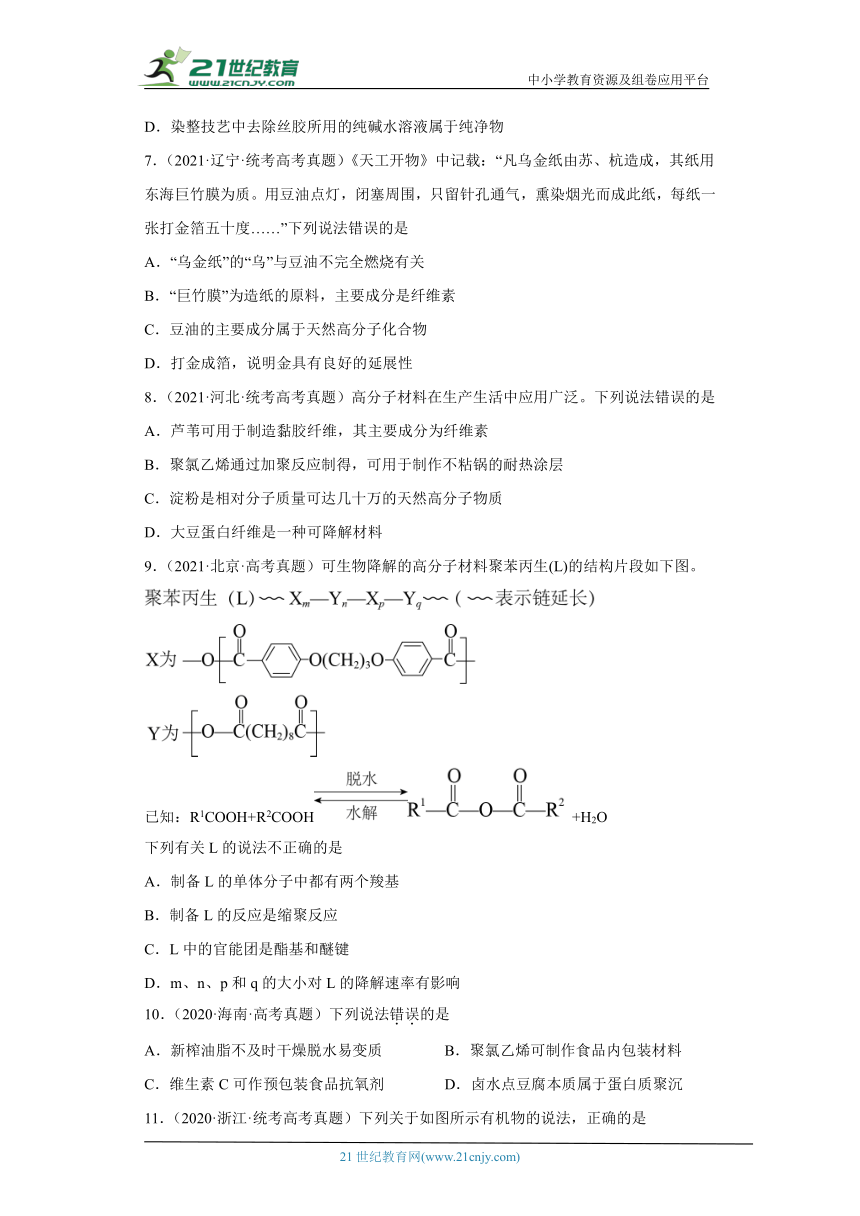 21世纪教育
WWW.21CNJY.COM
中小学教育资源及组卷应用平台
D．染整技艺中去除丝胶所用的纯碱水溶液属于纯净物
7.（2021·辽宁·统考高考真题）《天工开物》中记载：“凡乌金纸由苏、杭造成，其纸用
东海巨竹膜为质。用豆油点灯，闭塞周围，只留针孔通气，熏染烟光而成此纸，每纸一
张打金箔五十度……”下列说法错误的是
A．“乌金纸”的“乌”与豆油不完全燃烧有关
B．“巨竹膜”为造纸的原料，主要成分是纤维素
C．豆油的主要成分属于天然高分子化合物
D．打金成箔，说明金具有良好的延展性
8.（2021·河北·统考高考真题）高分子材料在生产生活中应用广泛。下列说法错误的是
A．芦苇可用于制造黏胶纤维，其主要成分为纤维素
B．聚氯乙烯通过加聚反应制得，可用于制作不粘锅的耐热涂层
C．淀粉是相对分子质量可达几十万的天然高分子物质
D．大豆蛋白纤维是一种可降解材料
9.（2021·北京·高考真题）可生物降解的高分子材料聚苯丙生(L)的结构片段如下图。
聚苯丙生 (L)﹏Xm—Yn—Xp—Yq﹏(﹏表示链延长)
X为 —O—[C(=O)—O(CH2)3O—C(=O)]—
Y为 —[O—C(=O)(CH2)8C(=O)]—
已知：R1COOH+R2COOH 脱水 水解 R1—C(=O)—O—C(=O)—R2 +H2O
下列有关 L 的说法不正确的是
A．制备 L 的单体分子中都有两个羧基
B．制备 L 的反应是缩聚反应
C．L 中的官能团是酯基和醚键
D．m、n、p 和 q 的大小对 L 的降解速率有影响
10.（2020·海南·高考真题）下列说法错误的是
A．新榨油脂不及时干燥脱水易变质 B．聚氯乙烯可制作食品内包装材料
C．维生素 C 可作预包装食品抗氧剂 D．卤水点豆腐本质属于蛋白质聚沉
11.（2020·浙江·统考高考真题）下列关于如图所示有机物的说法，正确的是
21 世纪教育网(www.21cnjy.com)